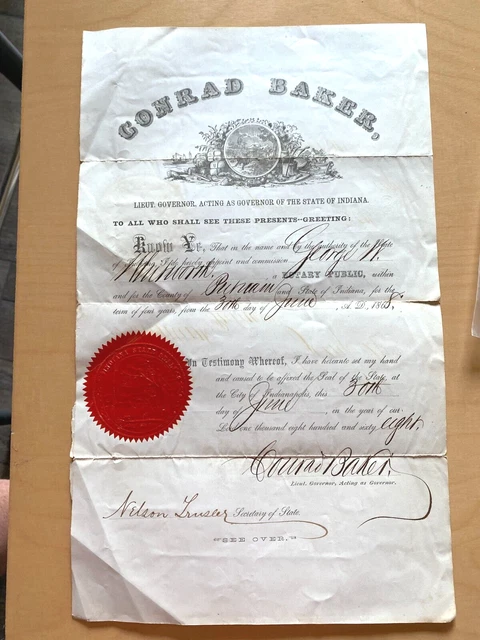 CONRAD BAKER,
LIEUT. GOVERNOR, ACTING AS GOVERNOR OF THE STATE OF INDIANA.
TO ALL WHO SHALL SEE THESE PRESENTS—GREETING:
Know Ye, That in the name and by the authority of the State
of I do hereby appoint and commission George W.
a NOTARY PUBLIC, within
and for the County of Putnam and State of Indiana, for the
term of four years, from the 30th day of June , A. D., 1868.
In Testimony Whereof, I have hereunto set my hand
and caused to be affixed the Seal of the State, at
the City of Indianapolis, this 30th
day of June , in the year of our
Lord one thousand eight hundred and sixty eight
Conrad Baker,
Lieut. Governor, Acting as Governor.
Nelson Trusler Secretary of State.
"SEE OVER."